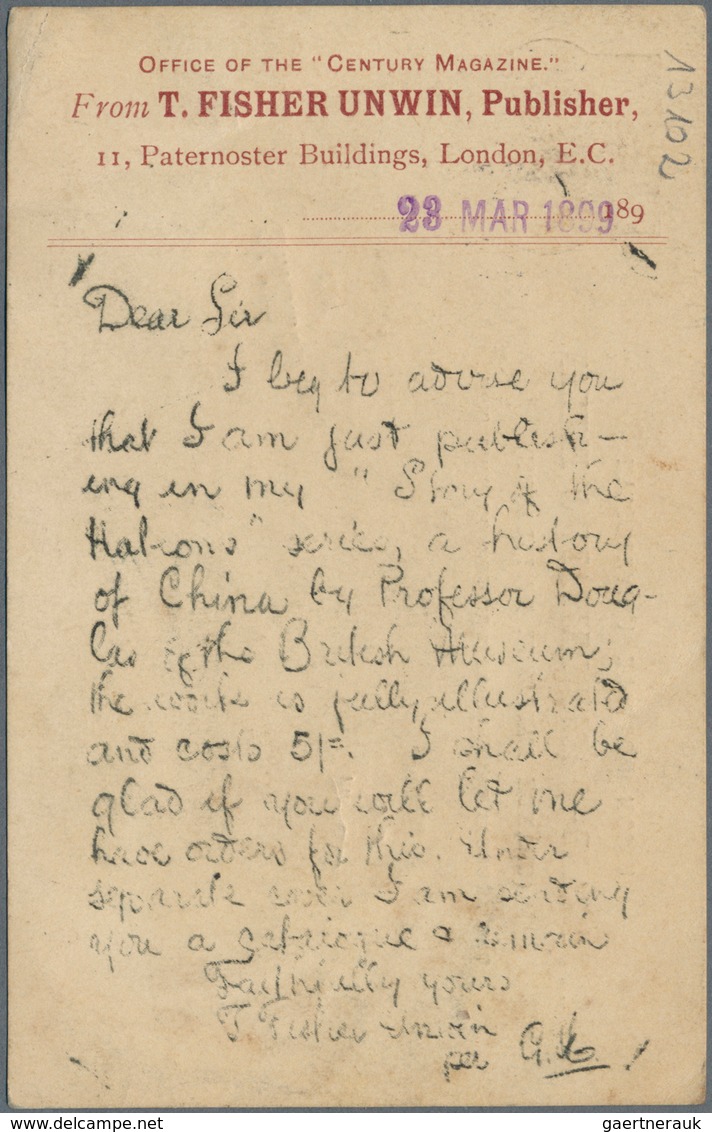 OFFICE OF THE "CENTURY MAGAZINE."
From T. FISHER UNWIN, Publisher,
11, Paternoster Buildings, London, E.C.
13102
23 MAR 1899 189
Dear Sir
I beg to advise you
that I am just publish-
ing in my "Story of the
Nations" series, a history
of China by Professor Doug-
las of the British Museum;
the work is fully illustrated
and costs 5/=. I shall be
glad if you will let me
have orders for this. Under
separate cover I am sending
you a catalogue & remain
Faithfully yours
T. Fisher Unwin
per
delcampe.net
gaertnerauk